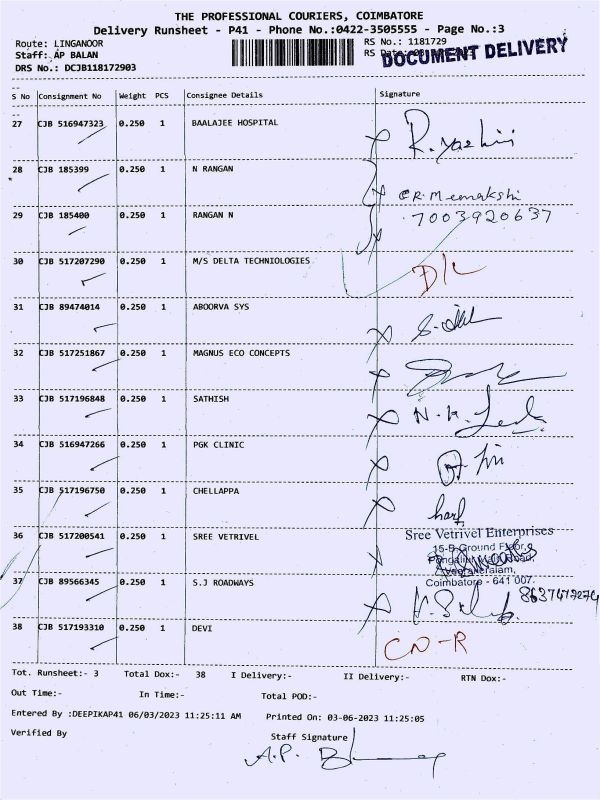 THE PROFESSIONAL COURIERS, COIMBATORE
Delivery Runsheet - P41 - Phone No.:0422-3505555 - Page No.:3
Route: LINGANOOR
RS No.: 1181729
Staff: AP BALAN
RS
DOCUMENT DELIVERY
DRS No.: DCJB118172903
S No Consignment No Weight PCS Consignee Details Signature
27 CJB 516947323 0.250 1 BAALAJEE HOSPITAL
28 CJB 185399 0.250 1 N RANGAN R. Meenakshi
29 CJB 185400 0.250 1 RANGAN N 7003920637
30 CJB 517207290 0.250 1 M/S DELTA TECHNIOLOGIES D/L
31 CJB 89474014 0.250 1 ABOORVA SYS
32 CJB 517251867 0.250 1 MAGNUS ECO CONCEPTS
33 CJB 517196848 0.250 1 SATHISH
34 CJB 516947266 0.250 1 PGK CLINIC
35 CJB 517196750 0.250 1 CHELLAPPA
36 CJB 517200541 0.250 1 SREE VETRIVEL
Sree Vetrivel Enterprises
15-B Ground Floor,
Main Road,
Coimbatore - 641 007.
37 CJB 89566345 0.250 1 S.J ROADWAYS
38 CJB 517193310 0.250 1 DEVI CN-R
Tot. Runsheet:- 3 Total Dox:- 38 I Delivery:- II Delivery:- RTN Dox:-
Out Time:- In Time:- Total POD:-
Entered By :DEEPIKAP41 06/03/2023 11:25:11 AM Printed On: 03-06-2023 11:25:05
Verified By Staff Signature
A.P.